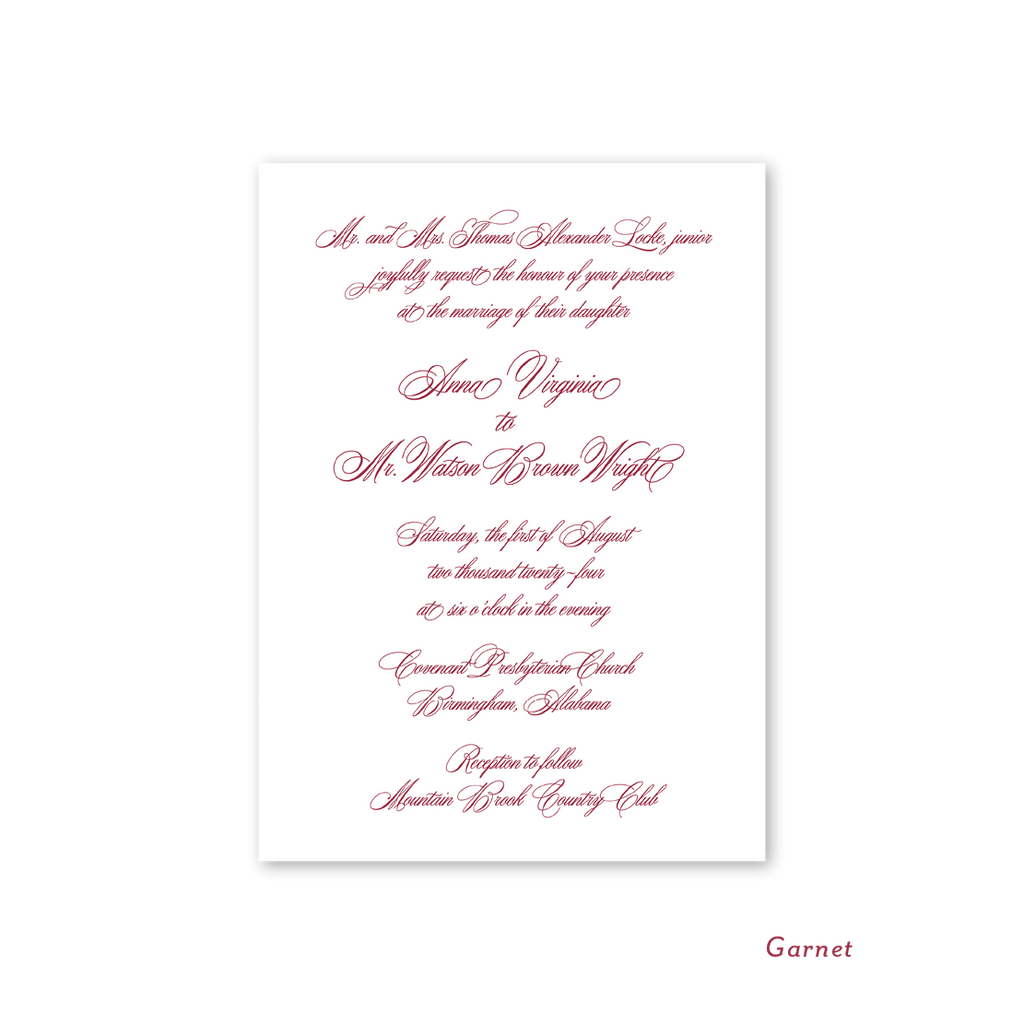 Mr. and Mrs. Thomas Alexander Locke, junior
joyfully request the honour of your presence
at the marriage of their daughter
Anna Virginia
to
Mr. Watson Brown Wright
Saturday, the first of August
two thousand twenty-four
at six o'clock in the evening
Covenant Presbyterian Church
Birmingham, Alabama
Reception to follow
Mountain Brook Country Club
Garnet